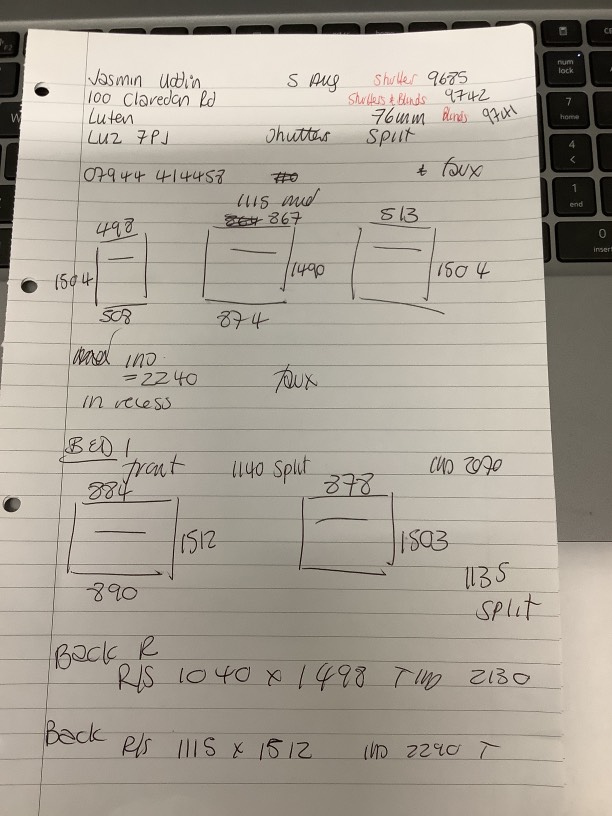 Jasmin Uddin 5 Aug Shutter 9685
100 Claredon Rd Shutters & Blinds 9742
Luten 76mm Blinds 9741
LU2 7PJ Shutters Split
07944 414458 + faux
1115 mid
498 867 513
1504 1490 1504
508 874
IND
=2240 faux
in recess
BED 1
front 1140 Split IND 2070
884 878
1512 1503
890 1135
Split
Back R
R/S 1040 x 1498 T IND 2130
Back R/S 1115 x 1512 IND 2290 T
num
lock
7
home
4
1
end
0
insert